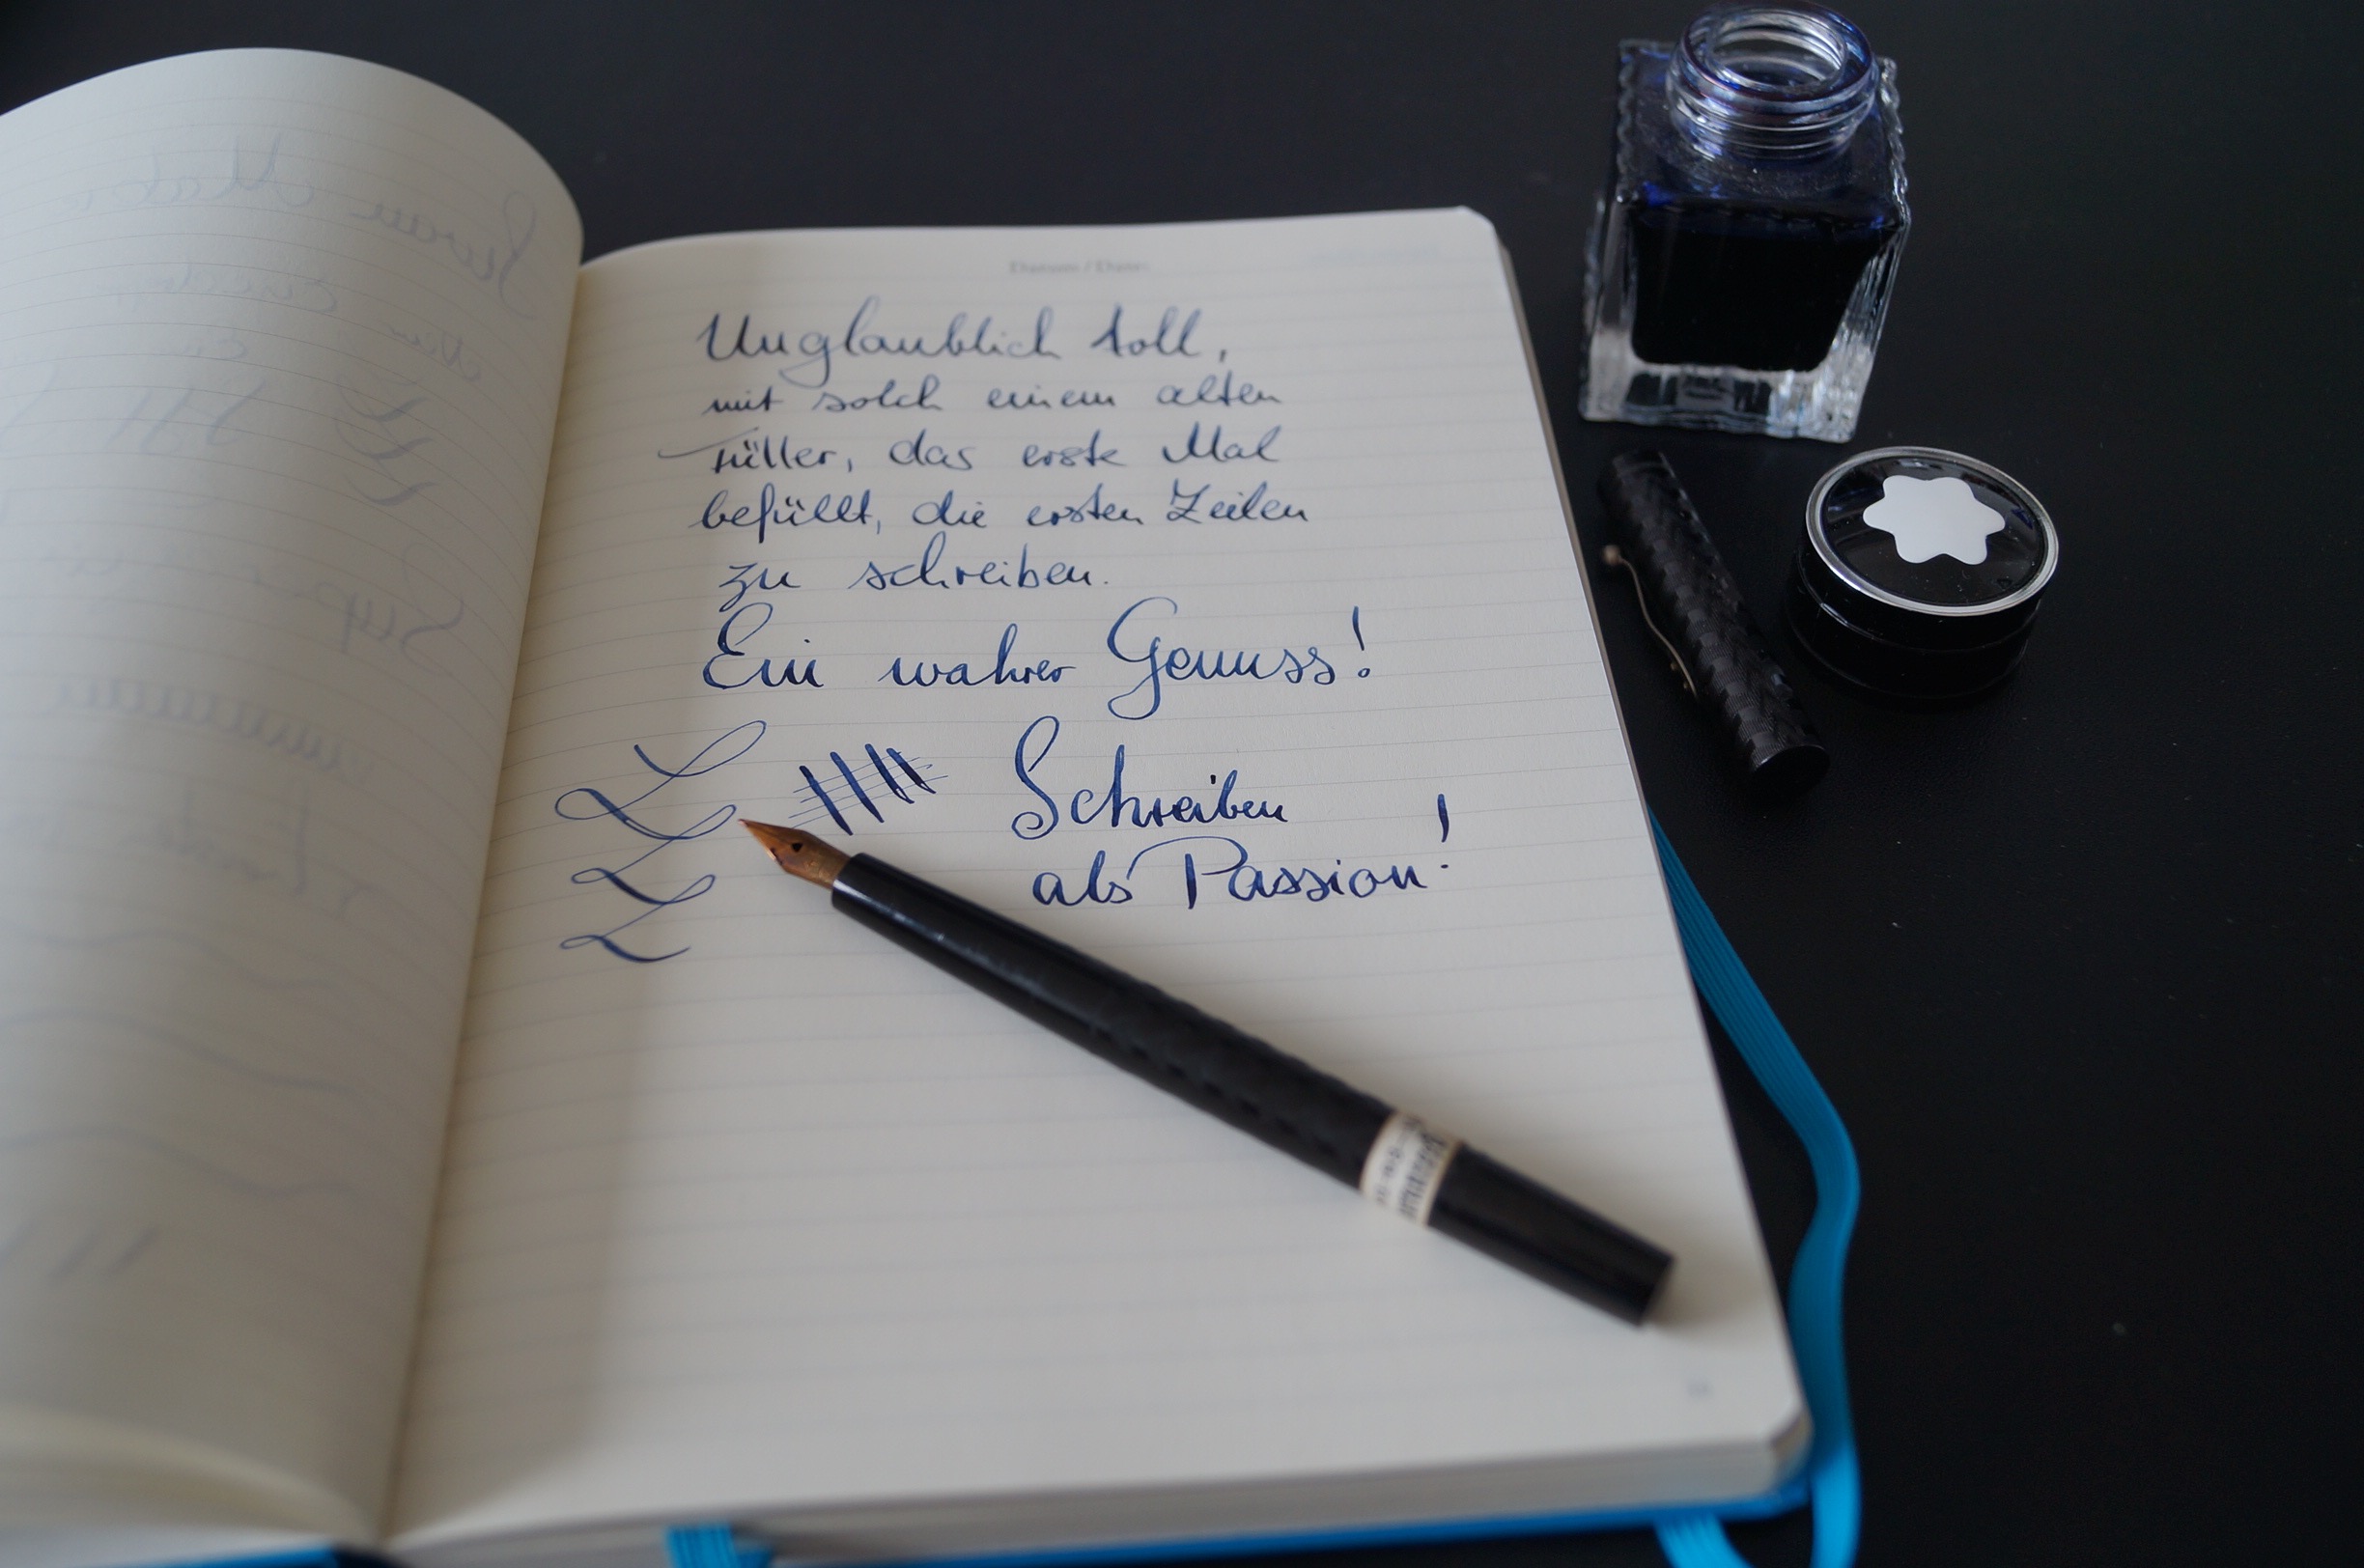 Datum / Date:
Unglaublich toll,
mit solch einem alten
Füller, das erste Mal
befüllt, die ersten Zeilen
zu schreiben.
Ein wahrer Genuss!
Schreiben
als Passion!